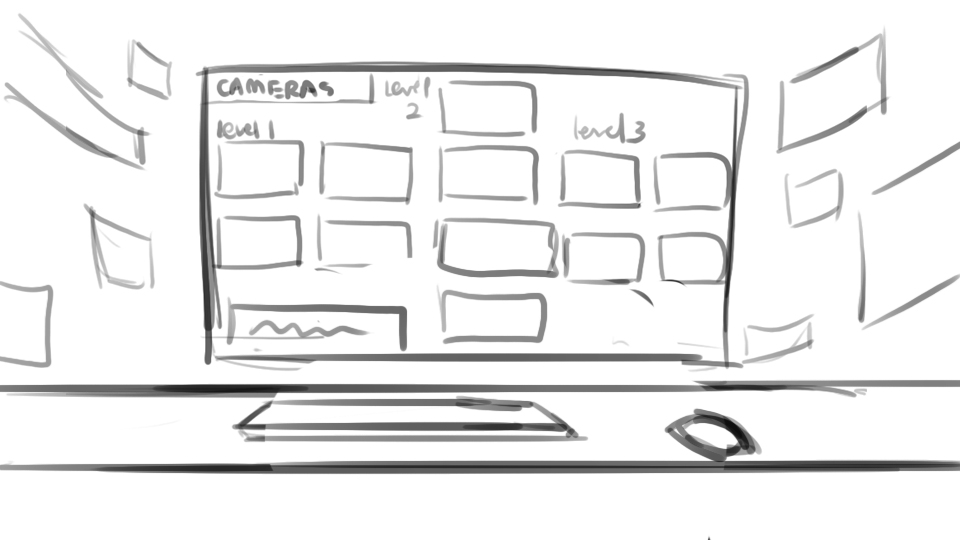 CAMERAS
level 1
level
2
level 3